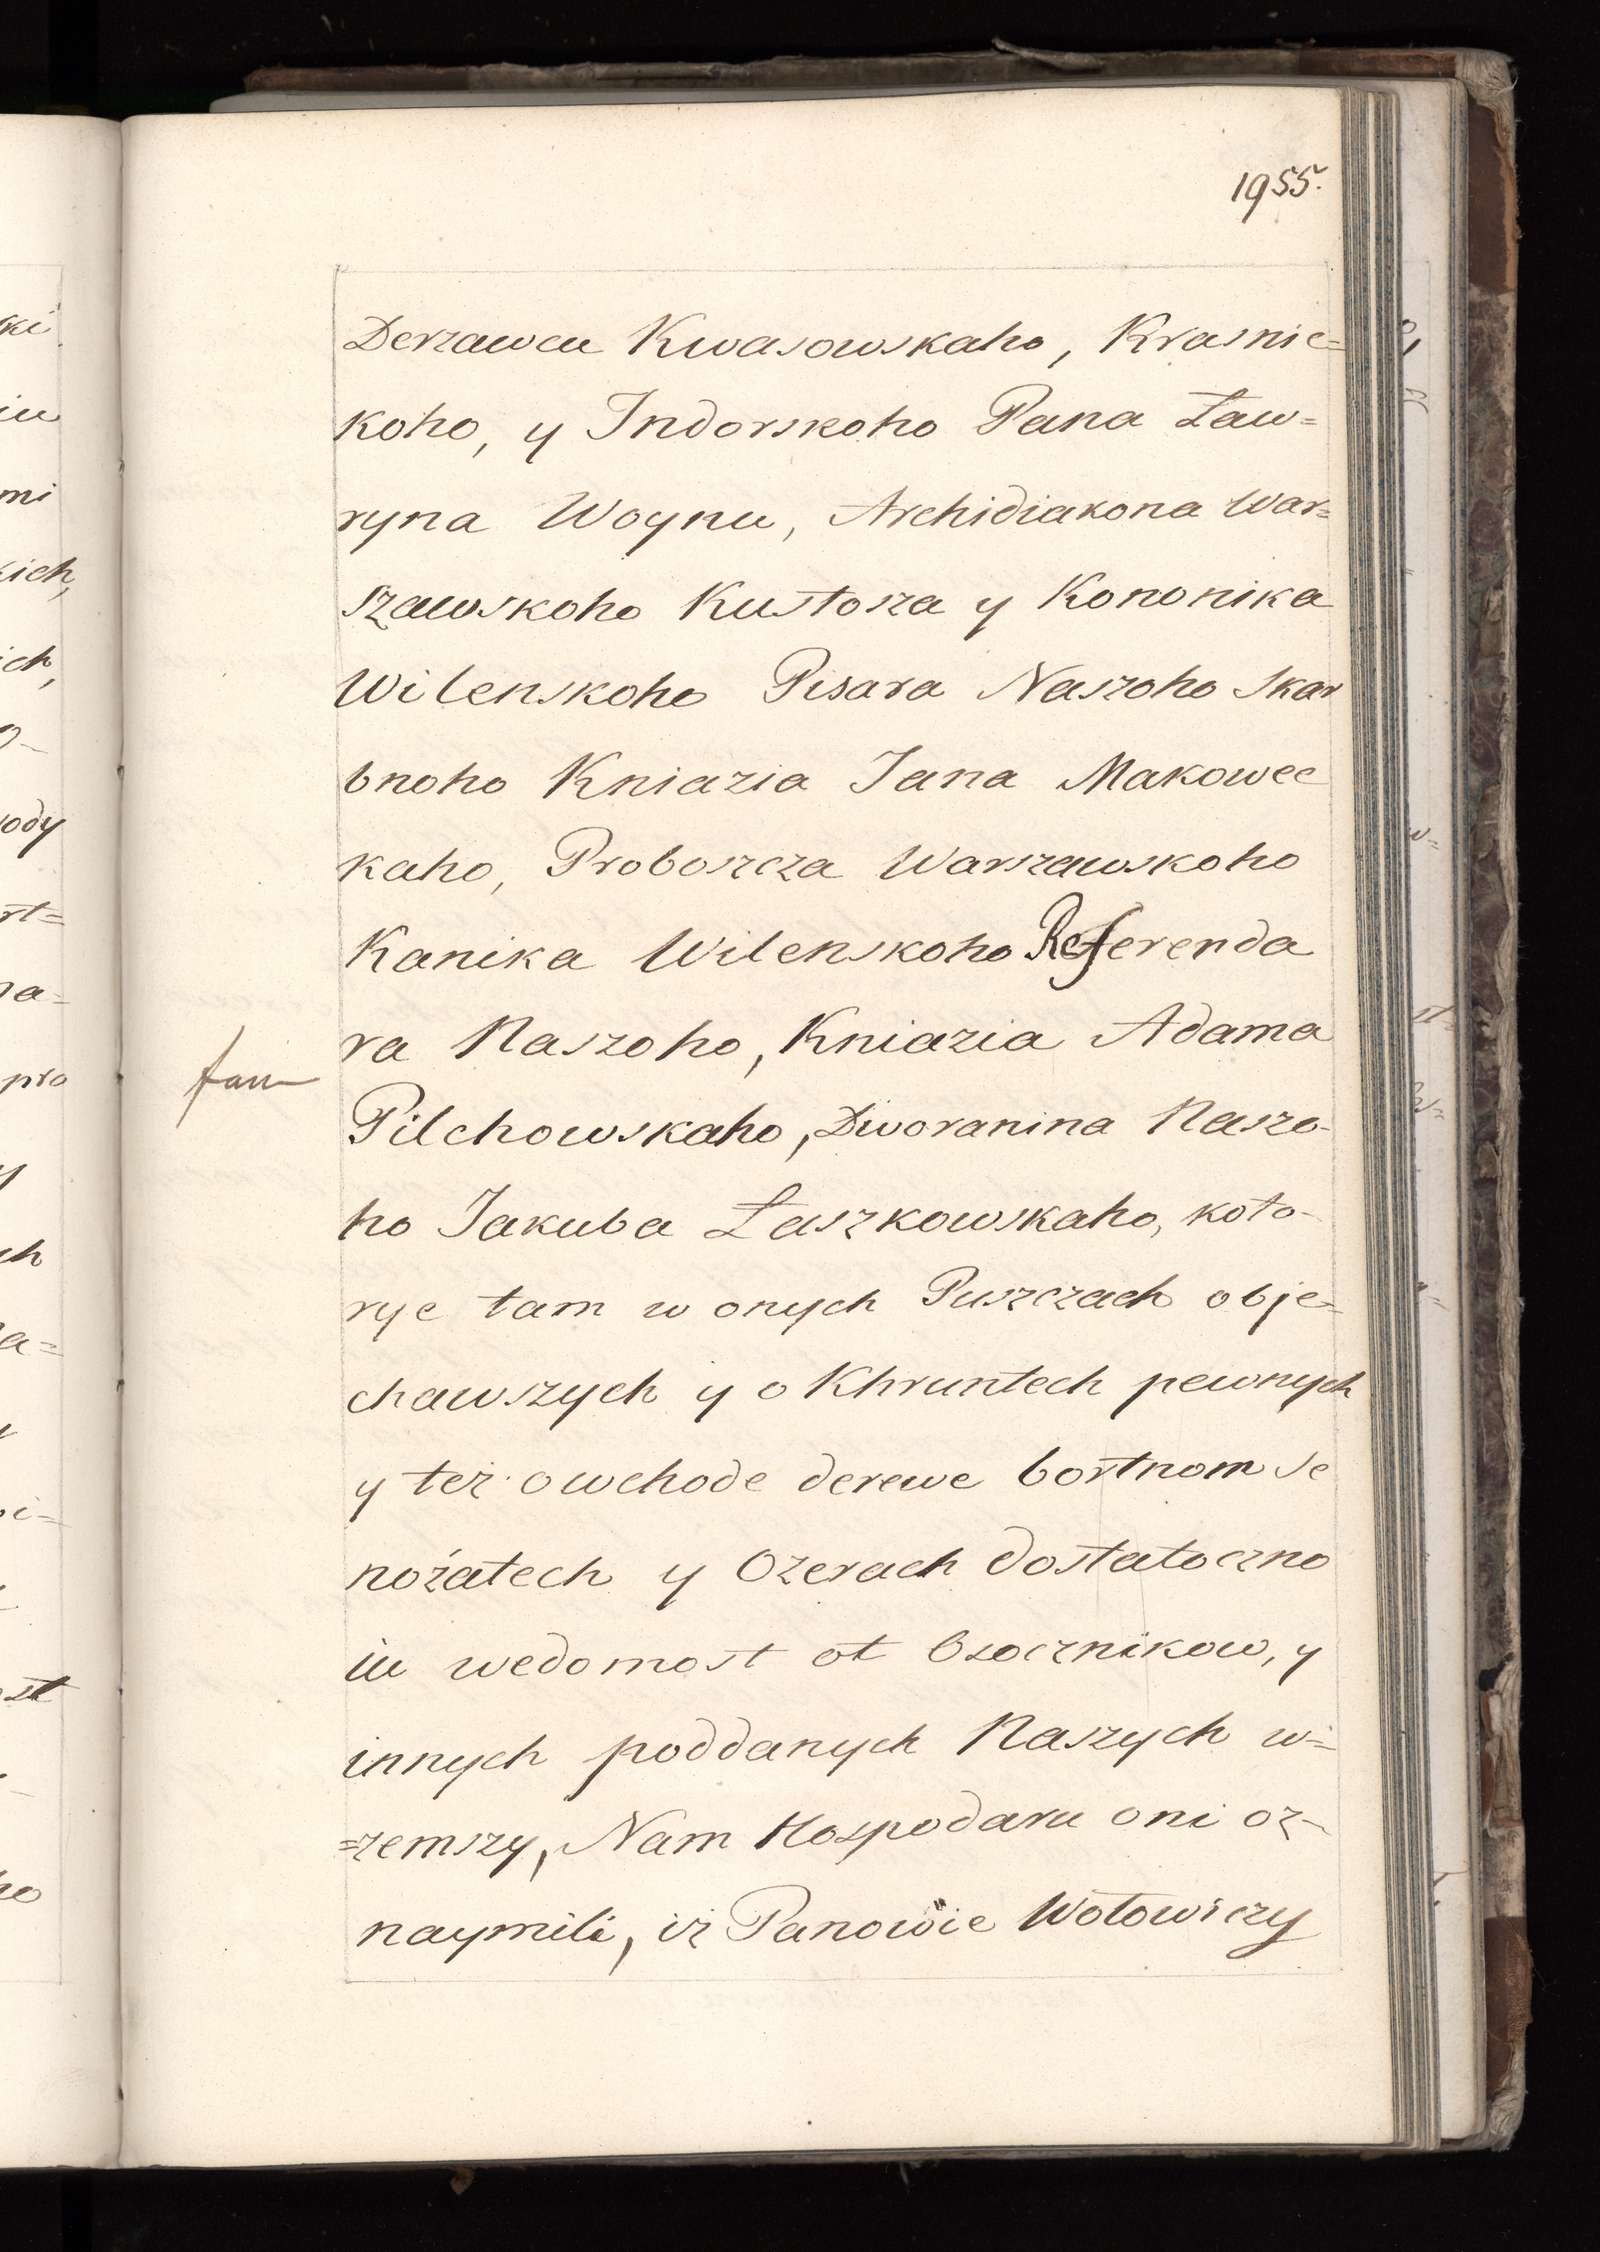 1955.
Derzawcu Kwasowskaho, Krasnic=
koho, y Indorskoho Pana Ław=
ryna Woynu, Archidiakona War=
szawskoho Kustosza y Kononika
Wilenskoho Pisara Naszoho Skar
bnoho Kniazia Jana Makowec
kaho, Proboszcza Warszawskoho
Kanika Wilenskoho Referenda
ra Naszoho, Kniazia Adama
Pilchowskaho, Dworanina Naszo-
ho Jakuba Łaszkowskaho, koto-
rye tam w onych Puszczach obje-
chawszych y o Khruntech pewnych
y też o wchode derewe bortnom se
nożatech y Ozerach dostatoczno
iu wedomost ot Osocznikow, y
innych poddanych Naszych w=
=zemszy, Nam Hospodaru oni oz-
naymili, iż Panowie Wołowiczy